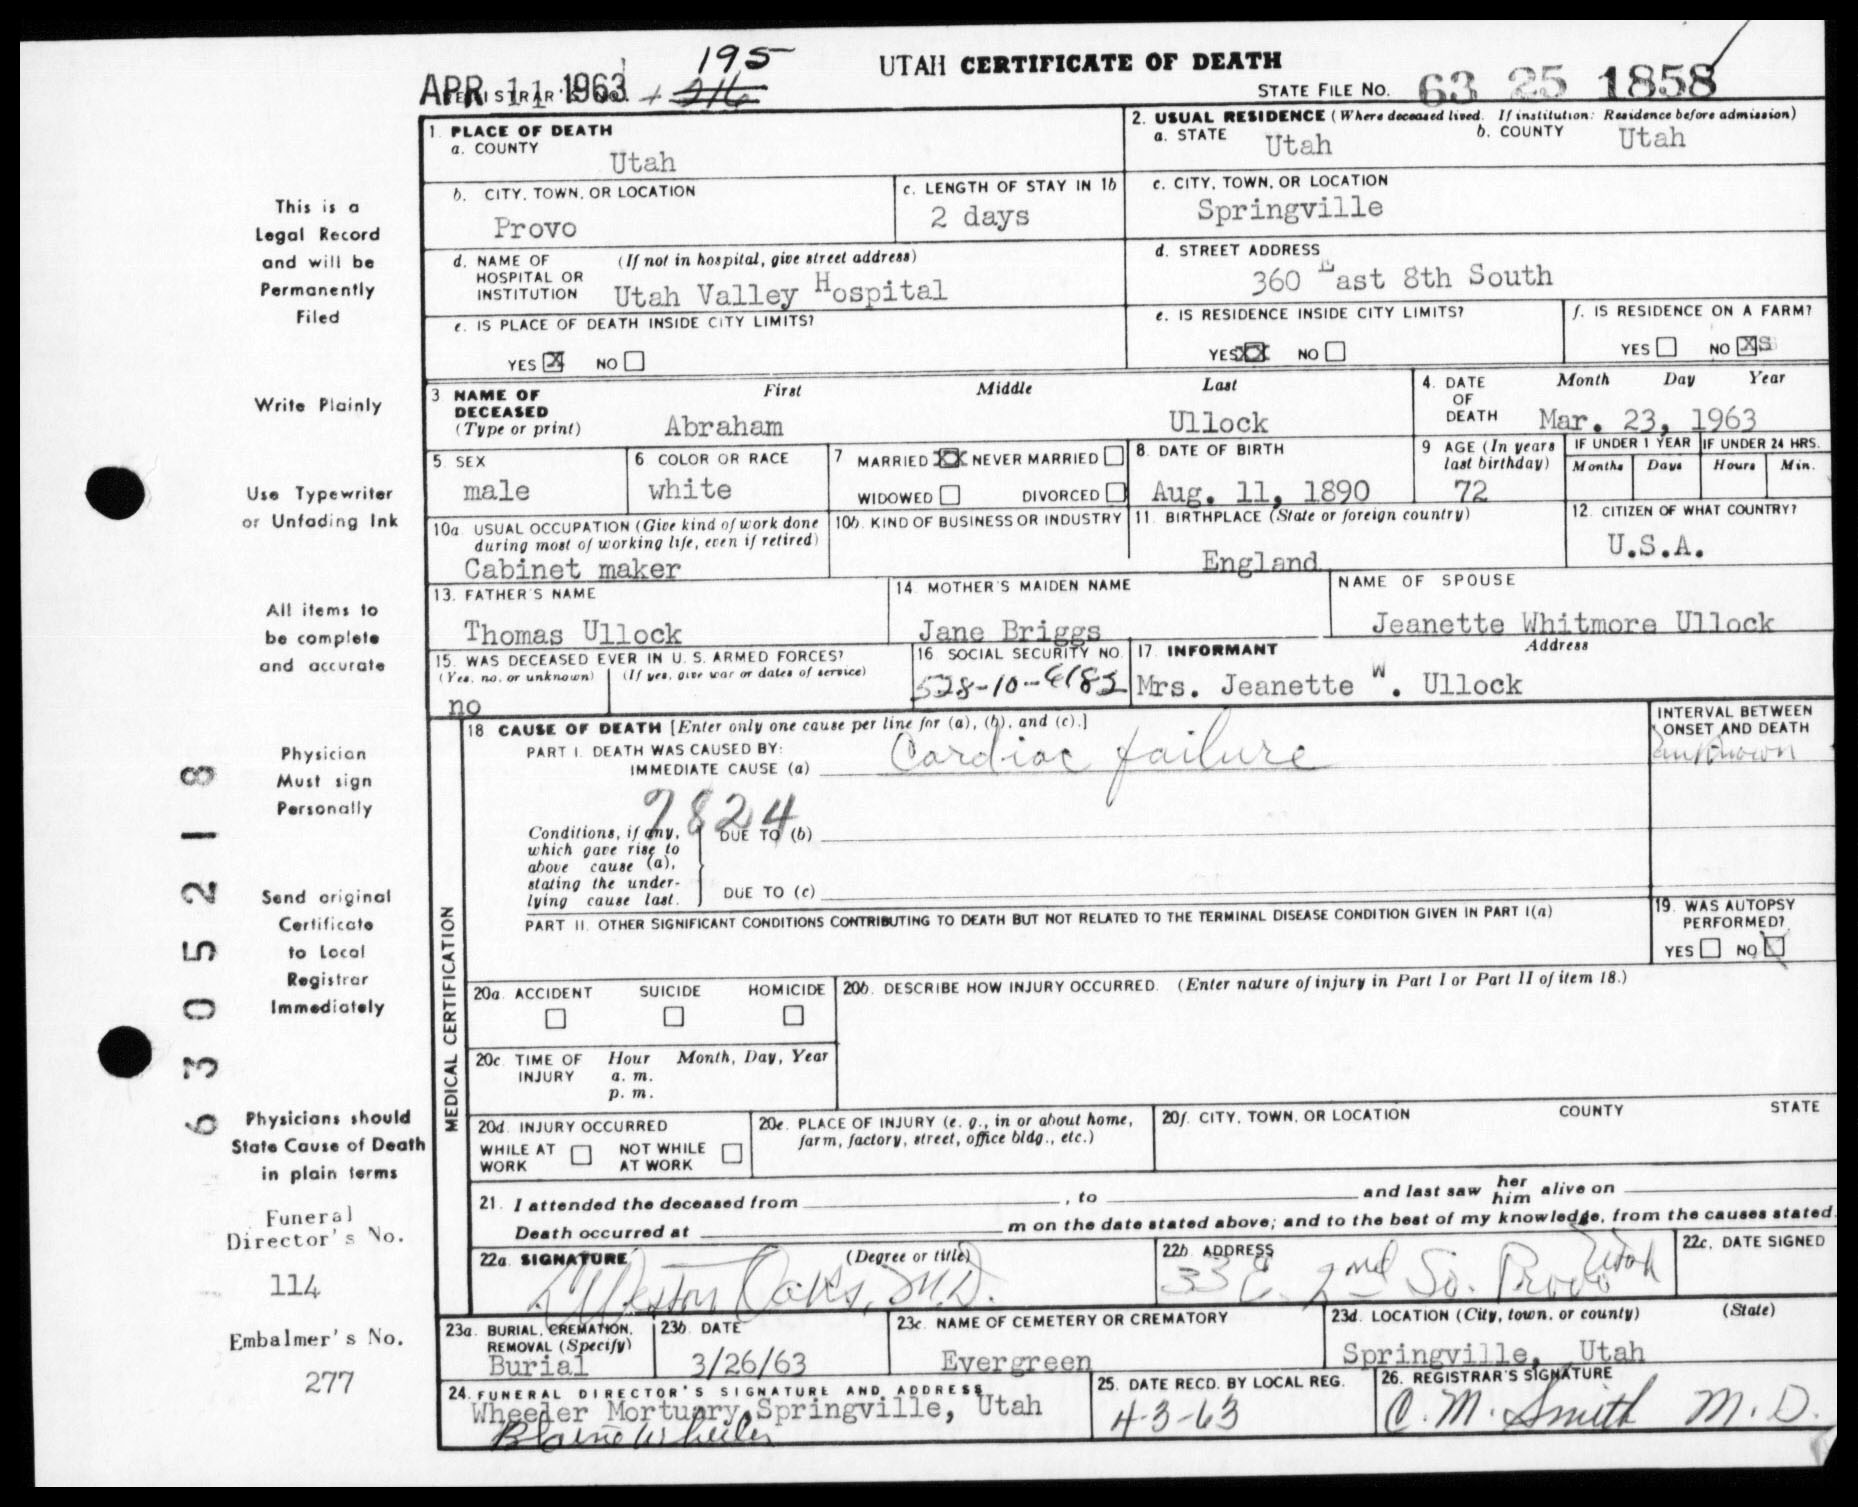 195
UTAH CERTIFICATE OF DEATH
APR 11 1963
REGISTRAR'S NO. 216
STATE FILE NO. 63 25 1858
1. PLACE OF DEATH
a. COUNTY
Utah
2. USUAL RESIDENCE (Where deceased lived. If institution: Residence before admission)
a. STATE Utah b. COUNTY Utah
b. CITY, TOWN, OR LOCATION
Provo
c. LENGTH OF STAY IN 1b
2 days
c. CITY, TOWN, OR LOCATION
Springville
d. NAME OF HOSPITAL OR INSTITUTION (If not in hospital, give street address)
Utah Valley Hospital
d. STREET ADDRESS
360 East 8th South
e. IS PLACE OF DEATH INSIDE CITY LIMITS?
YES X NO
e. IS RESIDENCE INSIDE CITY LIMITS?
YES XX NO
f. IS RESIDENCE ON A FARM?
YES NO XS
3 NAME OF DECEASED (Type or print)
First Middle Last
Abraham Ullock
4. DATE OF DEATH
Month Day Year
Mar. 23, 1963
5. SEX
male
6. COLOR OR RACE
white
7 MARRIED XX NEVER MARRIED
WIDOWED DIVORCED
8. DATE OF BIRTH
Aug. 11, 1890
9 AGE (In years last birthday)
72
IF UNDER 1 YEAR
Months Days
IF UNDER 24 HRS.
Hours Min.
10a. USUAL OCCUPATION (Give kind of work done during most of working life, even if retired)
Cabinet maker
10b. KIND OF BUSINESS OR INDUSTRY
11. BIRTHPLACE (State or foreign country)
England
12. CITIZEN OF WHAT COUNTRY?
U.S.A.
13. FATHER'S NAME
Thomas Ullock
14. MOTHER'S MAIDEN NAME
Jane Briggs
NAME OF SPOUSE
Jeanette Whitmore Ullock
15. WAS DECEASED EVER IN U. S. ARMED FORCES?
(Yes, no, or unknown) (If yes, give war or dates of service)
no
16 SOCIAL SECURITY NO.
528-10-4182
17. INFORMANT Address
Mrs. Jeanette W. Ullock
MEDICAL CERTIFICATION
18 CAUSE OF DEATH [Enter only one cause per line for (a), (b), and (c).]
PART I. DEATH WAS CAUSED BY:
IMMEDIATE CAUSE (a) Cardiac failure
INTERVAL BETWEEN ONSET AND DEATH
unknown
7824
Conditions, if any, which gave rise to above cause (a), stating the underlying cause last.
DUE TO (b)
DUE TO (c)
PART II. OTHER SIGNIFICANT CONDITIONS CONTRIBUTING TO DEATH BUT NOT RELATED TO THE TERMINAL DISEASE CONDITION GIVEN IN PART I(a)
19. WAS AUTOPSY PERFORMED?
YES NO X
20a. ACCIDENT SUICIDE HOMICIDE
20b. DESCRIBE HOW INJURY OCCURRED. (Enter nature of injury in Part I or Part II of item 18.)
20c. TIME OF INJURY Hour Month, Day, Year
a. m.
p. m.
20d. INJURY OCCURRED
WHILE AT WORK NOT WHILE AT WORK
20e. PLACE OF INJURY (e. g., in or about home, farm, factory, street, office bldg., etc.)
20f. CITY, TOWN, OR LOCATION COUNTY STATE
21. I attended the deceased from , to and last saw her him alive on
Death occurred at m on the date stated above; and to the best of my knowledge, from the causes stated.
22a. SIGNATURE (Degree or title)
Weston Oaks, M.D.
22b. ADDRESS
33 E. 2nd So. Provo Utah
22c. DATE SIGNED
23a. BURIAL, CREMATION, REMOVAL (Specify)
Burial
23b. DATE
3/26/63
23c. NAME OF CEMETERY OR CREMATORY
Evergreen
23d. LOCATION (City, town, or county) (State)
Springville, Utah
24. FUNERAL DIRECTOR'S SIGNATURE AND ADDRESS
Wheeler Mortuary, Springville, Utah
Blaine Wheeler
25. DATE RECD. BY LOCAL REG.
4-3-63
26. REGISTRAR'S SIGNATURE
C. M. Smith M.D.
This is a
Legal Record
and will be
Permanently
Filed
Write Plainly
Use Typewriter
or Unfading Ink
All items to
be complete
and accurate
Physician
Must sign
Personally
Send original
Certificate
to Local
Registrar
Immediately
Physicians should
State Cause of Death
in plain terms
Funeral
Director's No.
114
Embalmer's No.
277
6305218